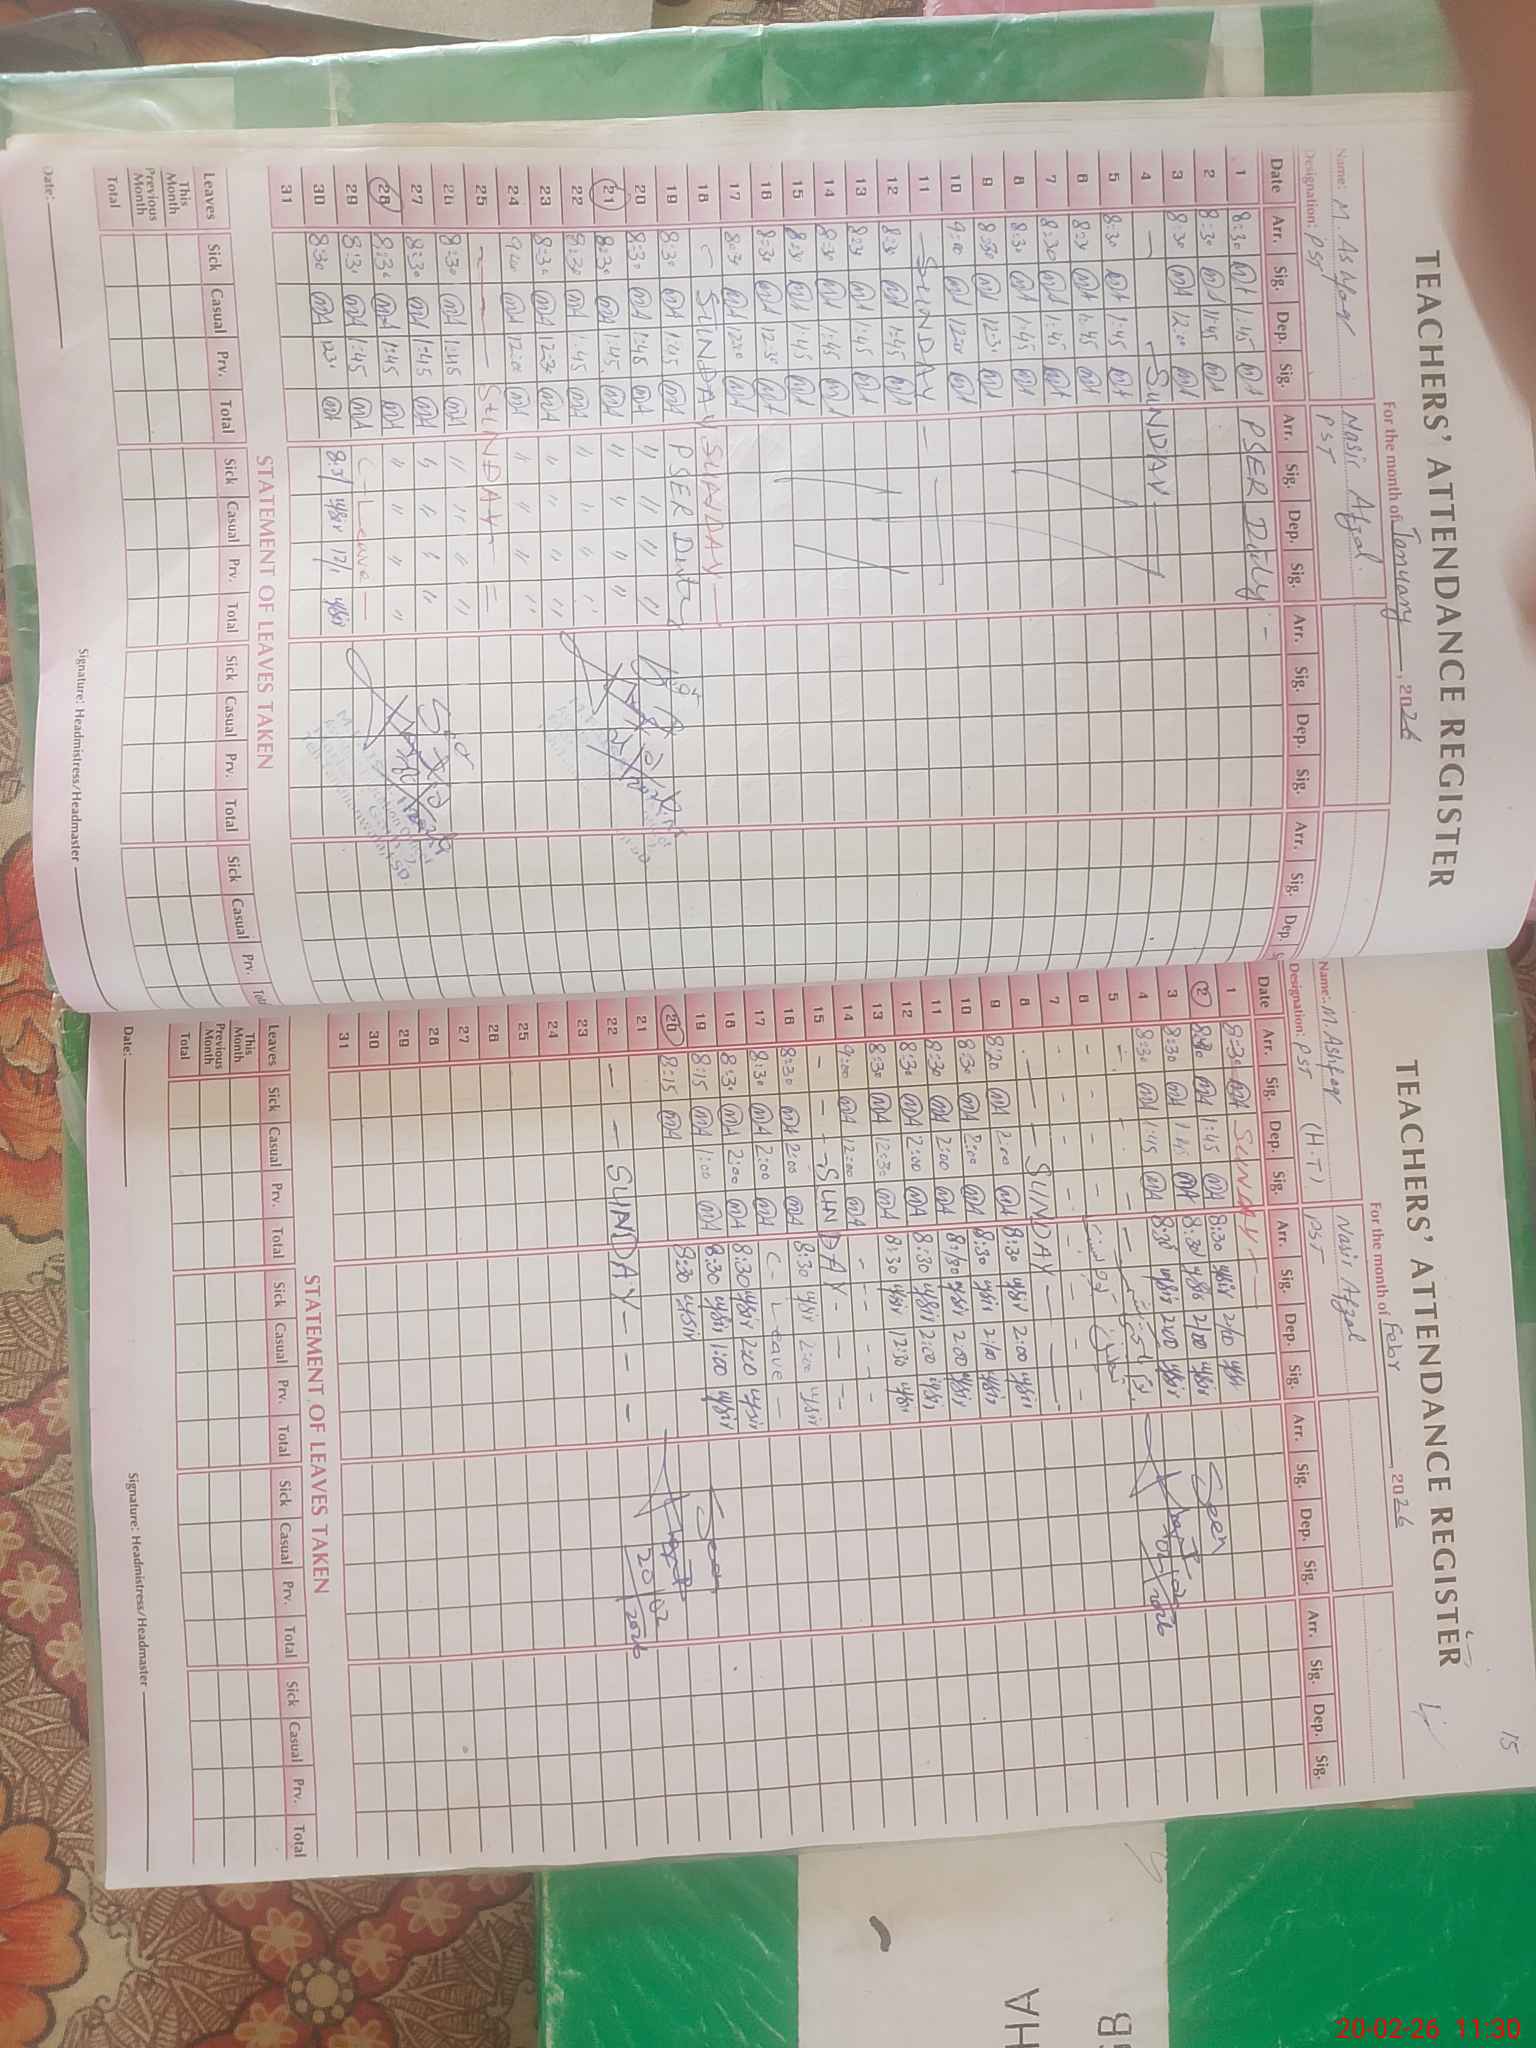 TEACHERS' ATTENDANCE REGISTER
For the month of January, 2026
Name: M. Ashfaq Nasir Afzal
Designation: PST PST
Date Arr. Sig. Dep. Sig. Arr. Sig. Dep. Sig. Arr. Sig. Dep. Sig. Arr. Sig. Dep.
1 8:30 MA 1:45 MA PSER Duty -
2 8:30 MA 1:45 MA
3 8:30 MA 12:00 MA
4 - - SUNDAY
5 8:30 MA 1:45 MA
6 8:30 MA 1:45 MA
7 8:30 MA 1:45 MA
8 8:30 MA 1:45 MA
9 8:30 MA 12:30 MA
10 9:00 MA 12:00 MA
11 - SUNDAY -
12 8:30 MA 1:45 MA
13 8:30 MA 1:45 MA
14 8:30 MA 1:45 MA
15 8:30 MA 1:45 MA
16 8:30 MA 12:30 MA
17 8:30 MA MA
18 SUNDAY SUNDAY
19 8:30 MA 1:45 MA PSER Duty
20 8:30 MA 1:45 MA " " " "
21 8:30 MA 1:45 MA " " " "
22 8:30 MA 1:45 MA " " " "
23 8:30 MA 12:30 MA " " " "
24 9:00 MA 12:00 MA " " " "
25 - - - SUNDAY - =
26 8:30 MA 1:45 MA " " " "
27 8:30 MA 1:45 MA " " " "
28 8:30 MA 1:45 MA " " " "
29 8:30 MA 1:45 MA C - Leave -
30 8:30 MA 1230 MA 8:31
31
STATEMENT OF LEAVES TAKEN
Leaves Sick Casual Prv. Total Sick Casual Prv. Total Sick Casual Prv. Total Sick Casual Prv.
This Month
Previous Month
Total
Date: Signature: Headmistress/Headmaster
15
TEACHERS' ATTENDANCE REGISTER
For the month of Febr, 2026
Name: M. Ashfaq Nasir Afzal
Designation: PST (H.T) PST
Date Arr. Sig. Dep. Sig. Arr. Sig. Dep. Sig. Arr. Sig. Dep. Sig. Arr. Sig. Dep. Sig.
1 8:30 MA SUNDAY -
2 8:30 MA 1:45 MA 8:30 Seen
3 8:30 MA 1:45 MA 8:30
4 8:30 MA 1:45 MA 8:30
5 -
6 -
7 -
8 - - SUNDAY -
9 8:20 MA 2:00 MA 8:30 2:00
10 8:30 MA 2:00 MA 8:30
11 8:30 MA 2:00 MA 2:00
12 8:30 MA 2:00 MA 8:30 2:00
13 8:30 MA 12:30 MA 8:30 12:30
14 9:00 MA 12:00 MA - - - -
15 - - - SUNDAY - - -
16 8:30 MA 2:00 MA 8:30 2:00
17 8:30 MA 2:00 MA C - Leave -
18 8:30 MA 2:00 MA 8:30 2:00
19 8:15 MA 1:00 MA 8:30 1:00 Seen
20 8:15 MA 8:30
21 20/02/2026
22 - - SUNDAY - - -
23
24
25
26
27
28
29
30
31
STATEMENT OF LEAVES TAKEN
Leaves Sick Casual Prv. Total Sick Casual Prv. Total Sick Casual Prv. Total Sick Casual Prv. Total
This Month
Previous Month
Total
Date: Signature: Headmistress/Headmaster
HA
20-02-26 11:30